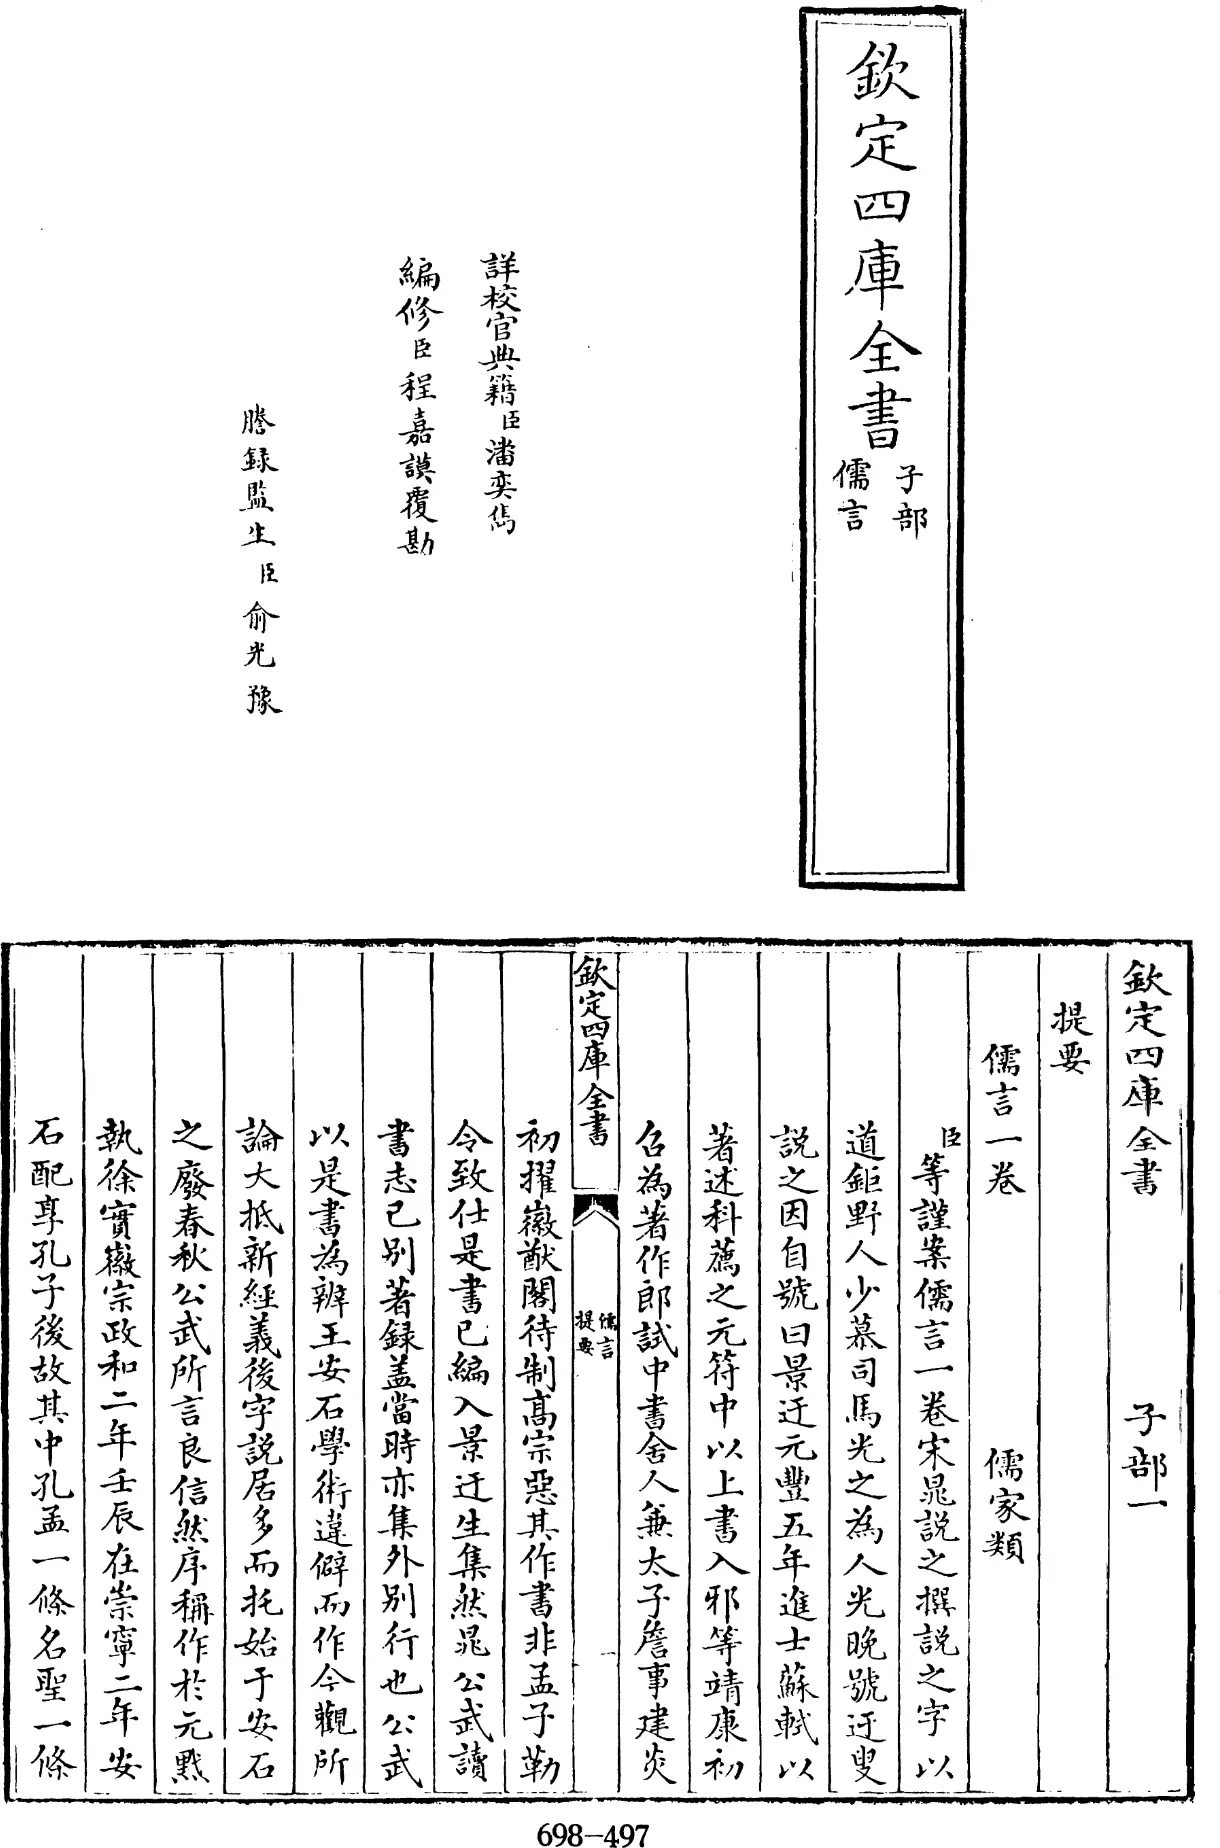 欽定四庫全書
子部
儒言
詳校官典籍臣潘奕儁
編修臣程嘉謨覆勘
謄録監生臣俞光豫
欽定四庫全書 子部一
提要
儒言一卷 儒家類
臣等謹案儒言一卷宋晁説之撰説之字以
道鉅野人少慕司馬光之為人光晚號迂叟
説之因自號曰景迂元豐五年進士蘇軾以
著述科薦之元符中以上書入邪等靖康初
召為著作郎試中書舍人兼太子詹事建炎
欽定四庫全書
儒言
提要
一
初擢徽猷閣待制髙宗惡其作書非孟子勒
令致仕是書已編入景迂生集然晁公武讀
書志已別著録盖當時亦集外別行也公武
以是書為辨王安石學術違僻而作今觀所
論大抵新經義後字説居多而托始于安石
之廢春秋公武所言良信然序稱作於元黓
執徐實徽宗政和二年壬辰在崇寧二年安
石配享孔子後故其中孔孟一條名聖一條
698-497